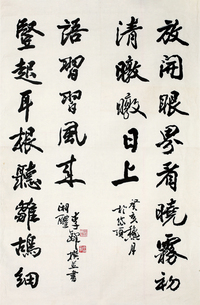 放開眼界看曉霧初
清曒曒日上
癸亥穐月
於岱頂
豎起耳根聽雛細
語習習風來
湘醴
李鐸撰并書